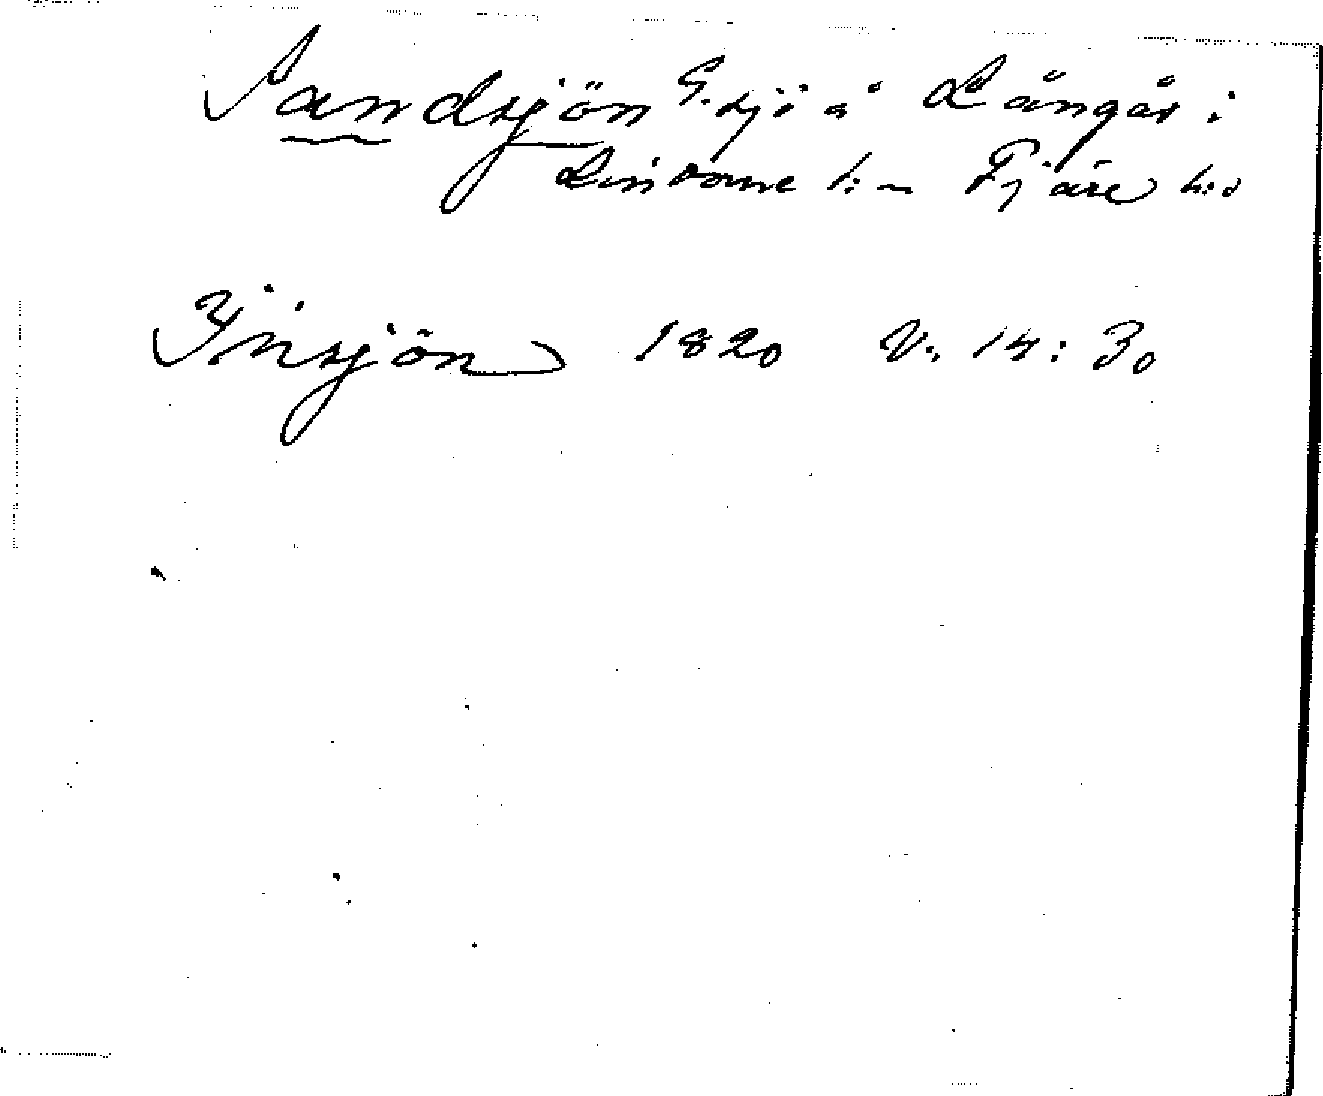 Sandsjön G. sjö å Långås i
Lindome s:n Fjäre h:d
Insjön 1820 V. 14: 30